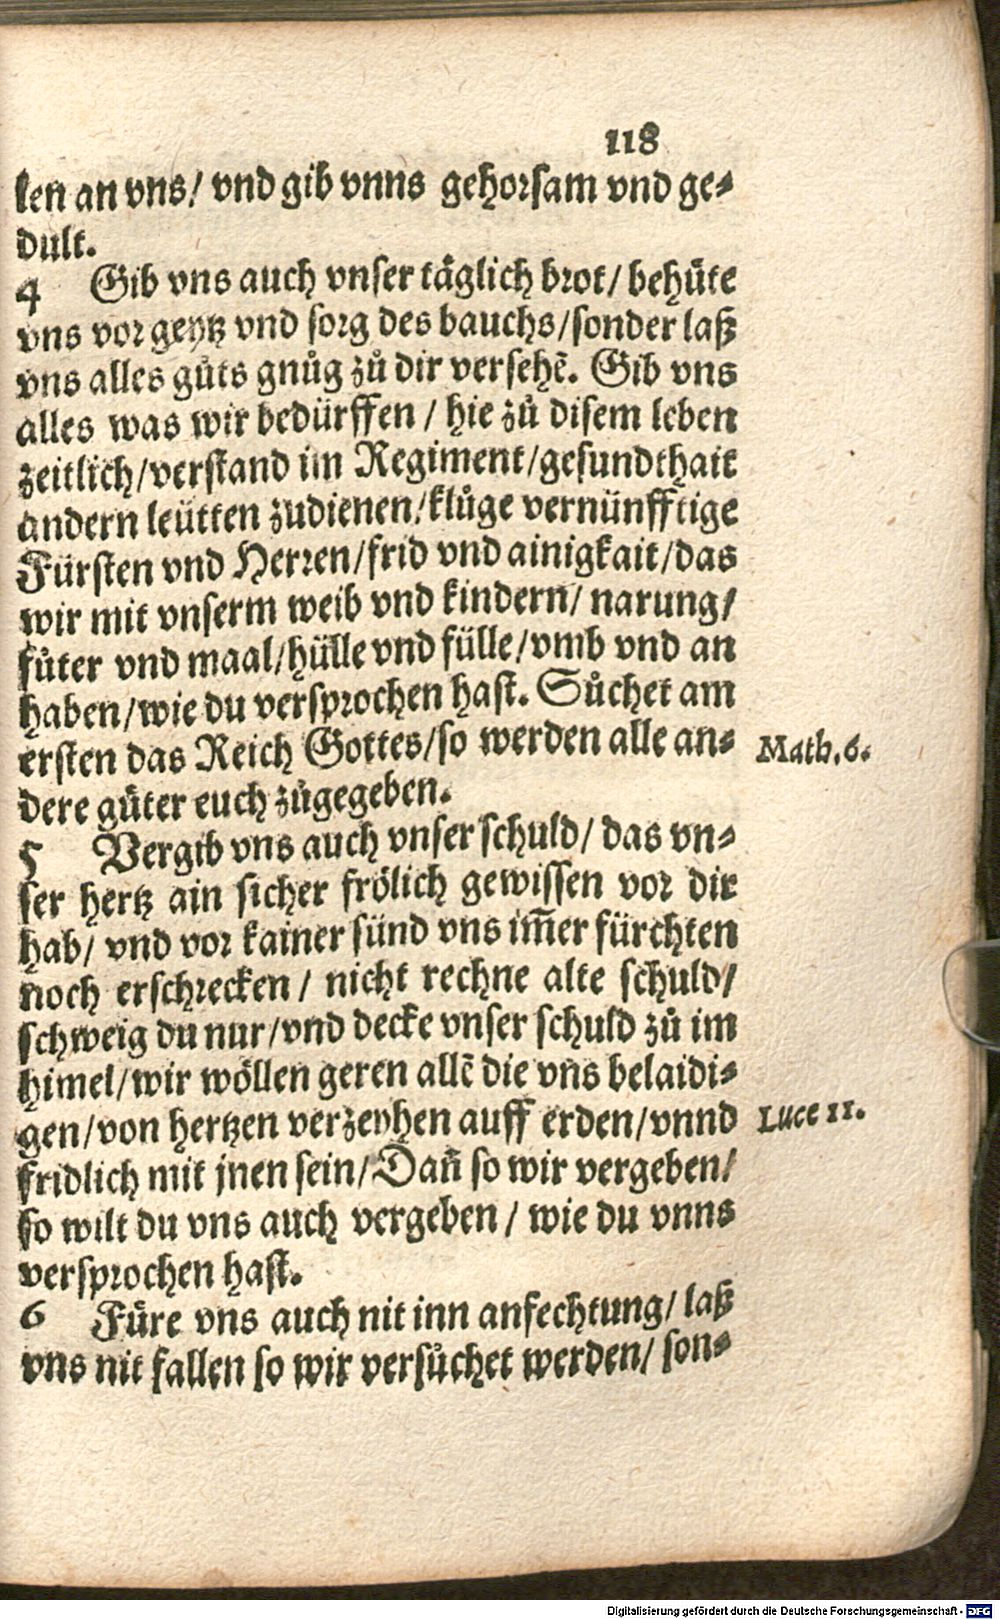 118
len an vns/ vnd gib vnns gehorsam vnd ge⸗
dult.
4 Gib vns auch vnser täglich brot/ behüte
vns vor geytz vnd sorg des bauchs/sonder laß
vns alles gůts gnůg zů dir versehẽ. Gib vns
alles was wir bedürffen / hie zů disem leben
zeitlich/verstand im Regiment/gesundthait
andern leütten zudienen/klůge vernünfftige
Fürsten vnd Herren/frid vnd ainigkait/das
wir mit vnserm weib vnd kindern/ narung/
fůter vnd maal/hülle vnd fülle/vmb vnd an
haben/wie du versprochen hast. Sůchet am
ersten das Reich Gottes/so werden alle an⸗
Math. 6.
dere güter euch zůgegeben.
5 Vergib vns auch vnser schuld/ das vn⸗
ser hertz ain sicher frölich gewissen vor dir
hab/ vnd vor kainer sünd vns im̃er fürchten
noch erschrecken / nicht rechne alte schuld/
schweig du nur/vnd decke vnser schuld zů im
himel/wir wöllen geren allẽ die vns belaidi⸗
gen/von hertzen verzeyhen auff erden/vnnd
Luce 11.
fridlich mit jnen sein/Dañ so wir vergeben/
so wilt du vns auch vergeben / wie du vnns
versprochen hast.
6 Füre vns auch nit inn anfechtung/ laß
vns nit fallen so wir versůchet werden/ son⸗
Digitalisierung gefördert durch die Deutsche Forschungsgemeinschaft - DFG